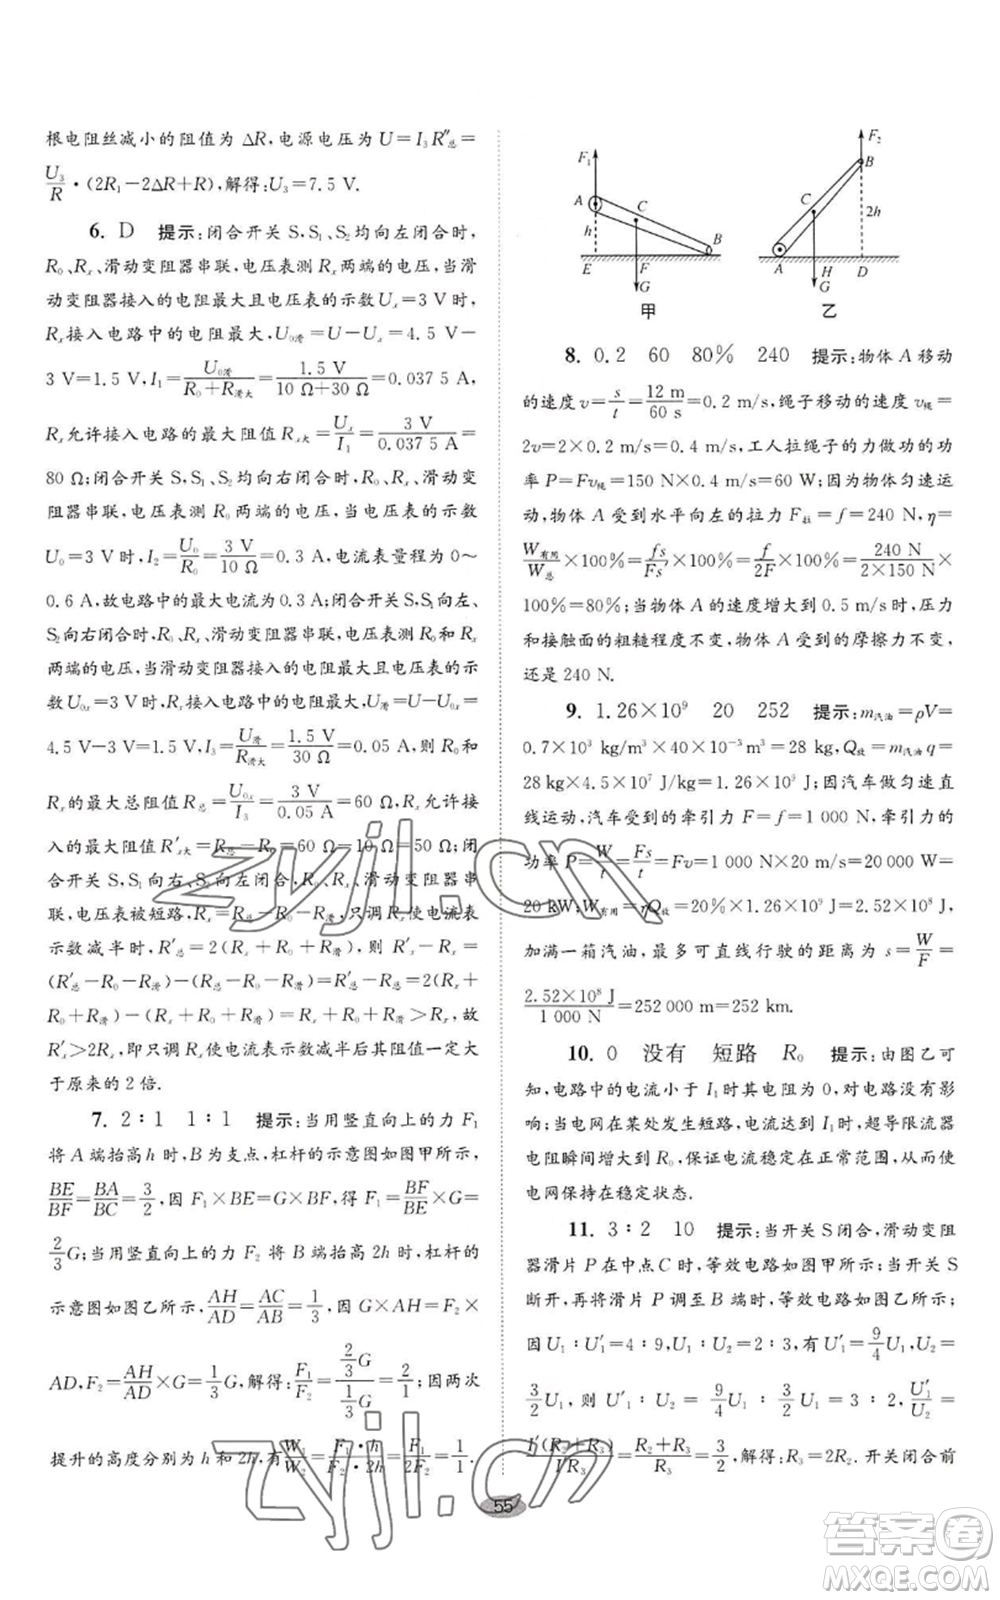 根电阻丝减小的阻值为 ΔR,电源电压为 U=I₃R″总=
U₃/R·(2R₁-2ΔR+R),解得:U₃=7.5 V.
6. D 提示:闭合开关 S、S₁、S₂ 均向左闭合时,
R₀、Rₓ、滑动变阻器串联,电压表测 Rₓ 两端的电压,当滑
动变阻器接入的电阻最大且电压表的示数 Uₓ=3 V 时,
Rₓ 接入电路中的电阻最大,U₀滑=U-Uₓ=4.5 V-
3 V=1.5 V,I₁=U₀滑/(R₀+R滑大)=1.5 V/(10 Ω+30 Ω)=0.037 5 A,
Rₓ 允许接入电路的最大电阻值 Rₓ大=U/I₁=3 V/0.037 5 A=
80 Ω;闭合开关 S、S₁、S₂ 均向右闭合时,R₀、Rₓ、滑动变
阻器串联,电压表测 R₀ 两端的电压,当电压表的示数
U₀=3 V 时,I₂=U₀/R₀=3 V/10 Ω=0.3 A,电流表量程为 0~
0.6 A,故电路中的最大电流为 0.3 A;闭合开关 S、S₁ 向左、
S₂ 向右闭合时,R₀、Rₓ、滑动变阻器串联,电压表测 R₀ 和 Rₓ
两端的电压,当滑动变阻器接入的电阻最大且电压表的示
数 U₀ₓ=3 V 时,Rₓ 接入电路中的电阻最大,U滑=U-U₀ₓ=
4.5 V-3 V=1.5 V,I₃=U滑/R滑大=1.5 V/30 Ω=0.05 A,则 R₀ 和
Rₓ 的最大总阻值 R总=U₀ₓ/I₃=3 V/0.05 A=60 Ω,Rₓ 允许接
入的最大电阻值 R′ₓ大=R总-R₀=60 Ω-10 Ω=50 Ω;闭
合开关 S、S₁ 向右、S₂ 向左闭合,R₀、Rₓ、滑动变阻器串
联,电压表被短路,Rₓ=R总-R₀-R滑,只调 Rₓ 使电流表
示数减半时,R′总=2(Rₓ+R₀+R滑),则 R′ₓ-Rₓ=
(R′总-R₀-R滑)-(R总-R₀-R滑)=R′总-R总=2(Rₓ+
R₀+R滑)-(Rₓ+R₀+R滑)=Rₓ+R₀+R滑>Rₓ,故
R′ₓ>2Rₓ,即只调 Rₓ 使电流表示数减半后其阻值一定大
于原来的 2 倍.
7. 2∶1 1∶1 提示:当用竖直向上的力 F₁
将 A 端抬高 h 时,B 为支点,杠杆的示意图如图甲所示,
BE/BF=BA/BC=3/2,因 F₁×BE=G×BF,得 F₁=BF/BE×G=
2/3G;当用竖直向上的力 F₂ 将 B 端抬高 2h 时,杠杆的
示意图如图乙所示,AH/AD=AC/AB=1/3,因 G×AH=F₂×
AD,F₂=AH/AD×G=1/3G,解得:F₁/F₂=(2/3G)/(1/3G)=2/1;因两次
提升的高度分别为 h 和 2h,有 W₁/W₂=F₁·h/F₂·2h=F₁/F₂=1/1.
F₁ A C B h E F G 甲
F₂ B C 2h A H D G 乙
8. 0.2 60 80% 240 提示:物体 A 移动
的速度 v=s/t=12 m/60 s=0.2 m/s,绳子移动的速度 v绳=
2v=2×0.2 m/s=0.4 m/s,工人拉绳子的力做功的功
率 P=Fv绳=150 N×0.4 m/s=60 W;因缓慢匀速运
动,物体 A 受到水平向左的拉力 F拉=f=240 N,η=
W有用/W总×100%=fs/Fs′×100%=f/2F×100%=240 N/(2×150 N)×
100%=80%;当物体 A 的速度增大到 0.5 m/s 时,压力
和接触面的粗糙程度不变,物体 A 受到的摩擦力不变,
还是 240 N.
9. 1.26×10⁹ 20 252 提示:m汽油=ρV=
0.7×10³ kg/m³×40×10⁻³m³=28 kg,Q放=m汽油q=
28 kg×4.5×10⁷ J/kg=1.26×10⁹ J;因汽车做匀速直
线运动,汽车受到的牵引力 F=f=1 000 N,牵引力的
功率 P=W/t=Fs/t=Fv=1 000 N×20 m/s=20 000 W=
20 kW,W有用=ηQ放=20%×1.26×10⁹ J=2.52×10⁸ J,
加满一箱汽油,最多可直线行驶的距离为 s=W/F=
2.52×10⁸ J/1 000 N=252 000 m=252 km.
10. 0 没有 短路 R₀ 提示:由图乙可
知,电路中的电流小于 I₁ 时其电阻为 0,对电路没有影
响;当电网在某处发生短路,电流达到 I₁ 时,超导限流器
电阻瞬间增大到 R₀,保证电流稳定在正常范围,从而使
电网保持在稳定状态.
11. 3∶2 10 提示:当开关 S 闭合,滑动变阻
器滑片 P 在中点 C 时,等效电路如图甲所示;当开关 S
断开,再将滑片 P 调至 B 端时,等效电路如图乙所示;
因 U₁∶U′₁=4∶9,U₁∶U₂=2∶3,有 U′₁=9/4U₁,U₂=
3/2U₁,则 U′₁∶U₂=9/4U₁∶3/2U₁=3∶2,U′₁/U₂=
I′(R₂+R₃)/I′R₃=(R₂+R₃)/R₃=3/2,解得:R₃=2R₂.开关闭合前
55
zyjl.cn
zyjl.cn
答案卷
MXQE.COM